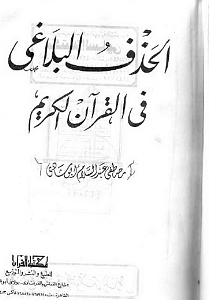 الحذف البلاغى
فى القرآن الكريم
مصطفى عبد السلام أبو شادى
مكتبة القرآن
للطبع والنشر والتوزيع